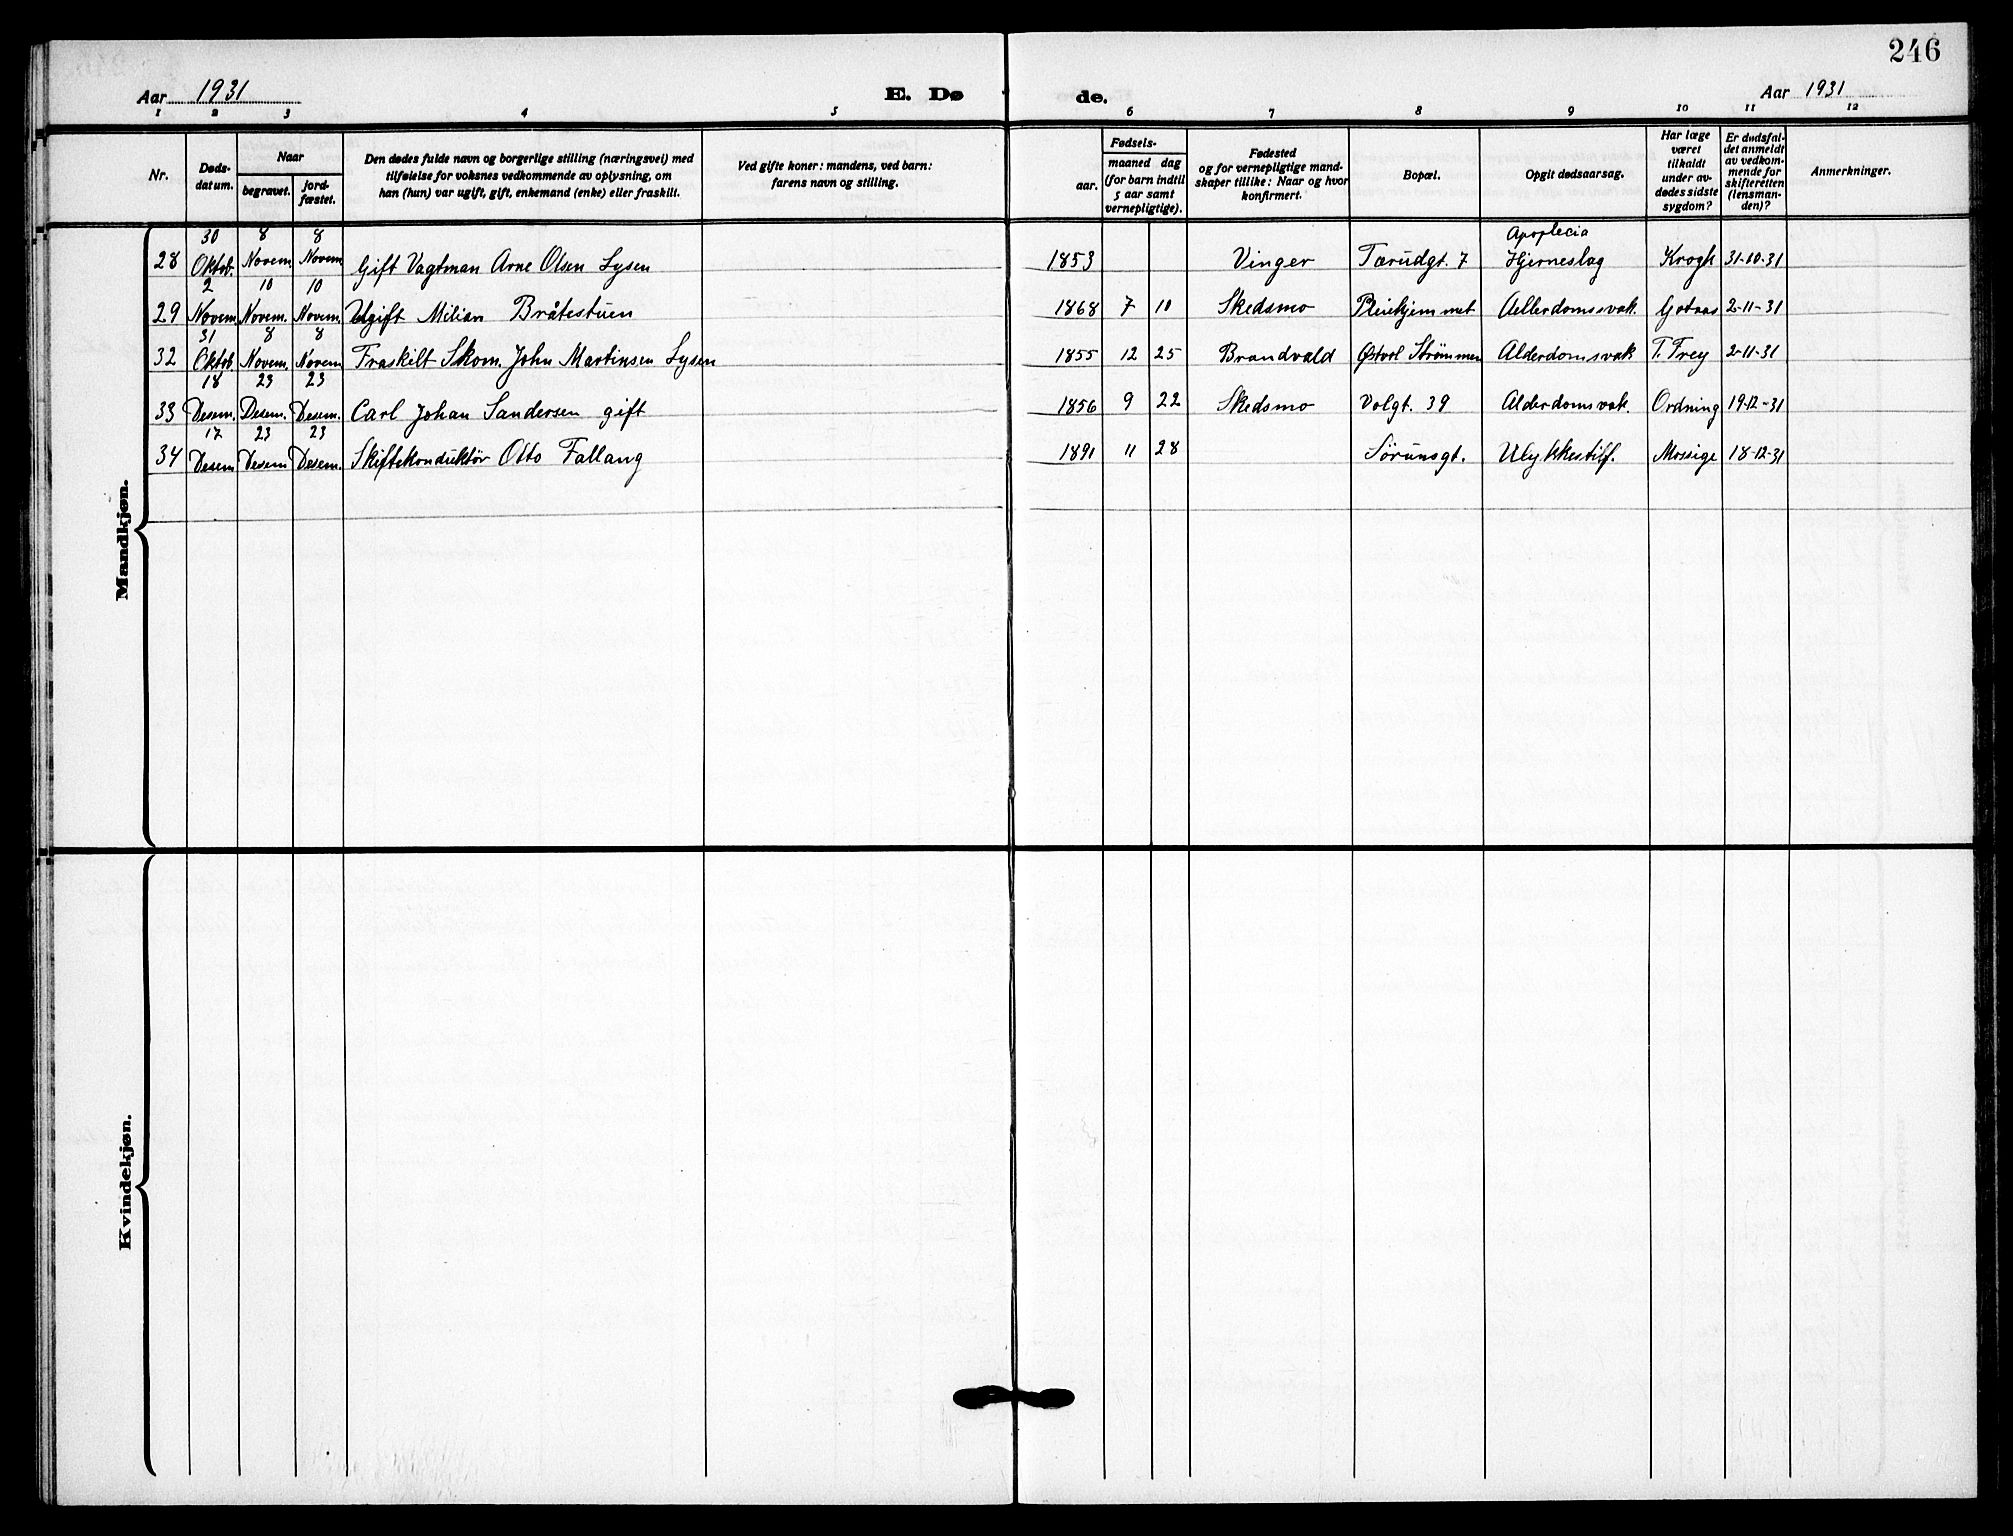 246
Aar 1931
E. Dø
de.
Aar 1931
1 2 3 4 5 6 7 8 9 10 11 12
Nr.
Døds-
datum.
Naar
begravet.
jord-
fæstet.
Den dødes fulde navn og borgerlige stilling (næringsvei) med
tilføielse for voksnes vedkommende av oplysning, om
han (hun) var ugift, gift, enkemand (enke) eller fraskilt.
Ved gifte koner: mandens, ved barn:
farens navn og stilling.
Fødsels-
aar.
maaned dag
(for barn indtil
5 aar samt
vernepligtige).
Fødested
og for vernepligtige mand-
skaper tillike: Naar og hvor
konfirmert.
Bopæl.
Opgit dødsaarsag.
Har læge
været
tilkaldt
under av-
dødes sidste
sygdom?
Er dødsfal-
det anmeldt
av vedkom-
mende for
skifteretten
(lensman-
den)?
Anmerkninger.
Mandkjøn.
30 8 8 Apoplecia
28 Oktob. Novem. Novem. Gift Vagtman Arne Olsen Lysen 1853 Vinger Tærudgt. 7 Hjerneslag Krogh 31-10-31
2 10 10
29 Novem. Novem. Novem. Ugift Milian Bråtestuen 1868 7 10 Skedsmo Pleiehjemmet Aellerdomssvak. Gotaas 2-11-31
31 8 8
32 Oktob. Novem. Novem. Fraskilt Skom. John Martinsen Lysen 1855 12 25 Brandvald Østvol Strømmen Alderdomsvak T. Frey 2-11-31
18 23 23
33 Desem. Desem. Desem. Carl Johan Sandersen gift 1856 9 22 Skedsmo Volgt. 39 Alderdomsvak. Ordning 19-12-31
17 23 23
34 Desem Desem Desem. Skiftekonduktør Otto Fallang 1891 11 28 Sørumsgt. Ulykkestilf. Mossige 18-12-31
Kvindekjøn.